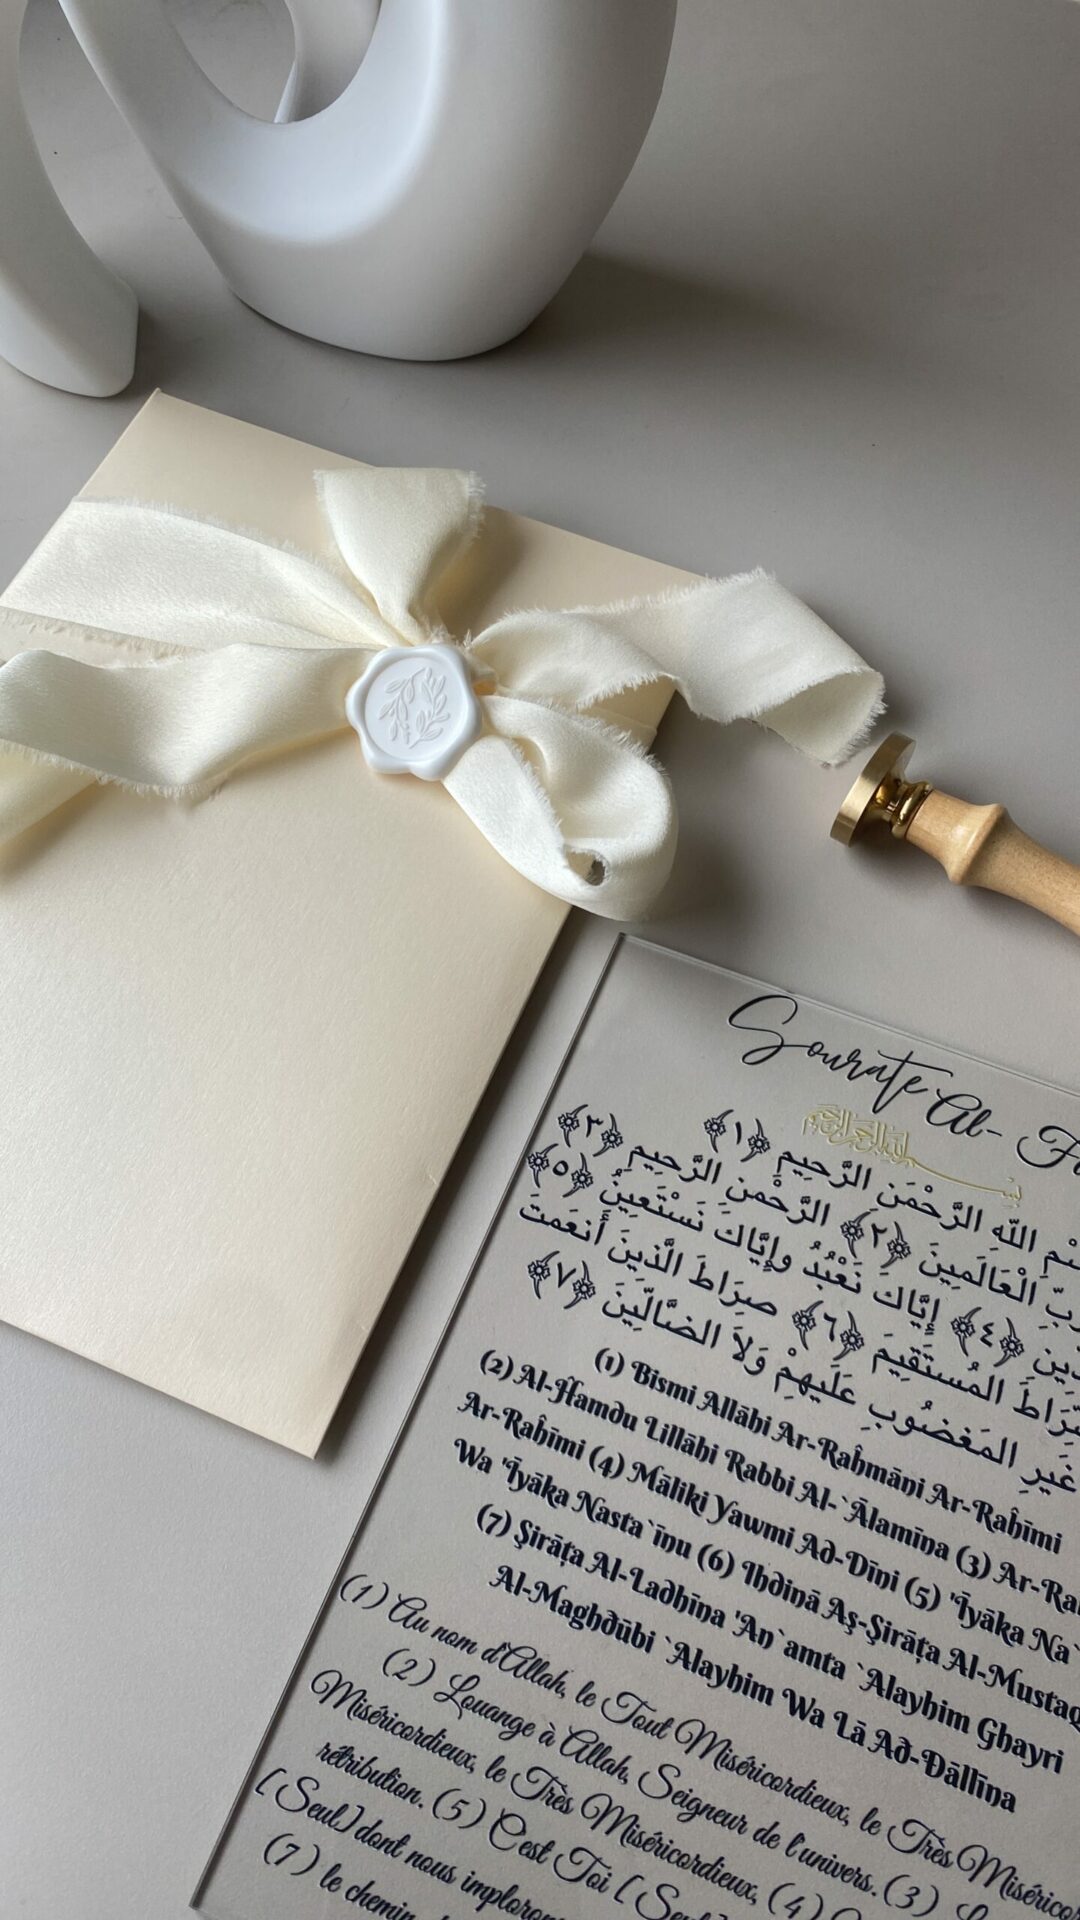 Sourate Al-
بِسْمِ اللهِ الرَّحْمَنِ الرَّحِيمِ ﴿١﴾
رَبِّ الْعَالَمِينَ ﴿٢﴾ الرَّحْمنِ الرَّحِيمِ ﴿٣﴾
﴿٤﴾ إِيَّاكَ نَعْبُدُ وإِيَّاكَ نَسْتَعِينُ ﴿٥﴾
المُستَقِيمَ ﴿٦﴾ صِرَاطَ الَّذِينَ أَنعَمتَ
غَيرِ المَغضُوبِ عَلَيهِمْ وَلاَ الضَّالِّينَ ﴿٧﴾
(1) Bismi Allāhi Ar-Raĥmāni Ar-Raĥīmi
(2) Al-Ĥamdu Lillāhi Rabbi Al-`Ālamīna (3) Ar-
Ar-Raĥīmi (4) Māliki Yawmi Ad-Dīni (5) 'Īyāka Na`
Wa 'Īyāka Nasta`īnu (6) Ihdinā Aş-Şirāţa Al-
(7) Şirāţa Al-Ladhīna 'An`amta `Alayhim Ghayri
Al-Maghđūbi `Alayhim Wa Lā Ađ-Đāllīna
(1) Au nom d'Allah, le Tout Miséricordieux, le Très
(2) Louange à Allah, Seigneur de l'univers. (3)
Miséricordieux, le Très Miséricordieux, (4)
rétribution. (5) C'est Toi [
[Seul] dont nous
(7) le chemin